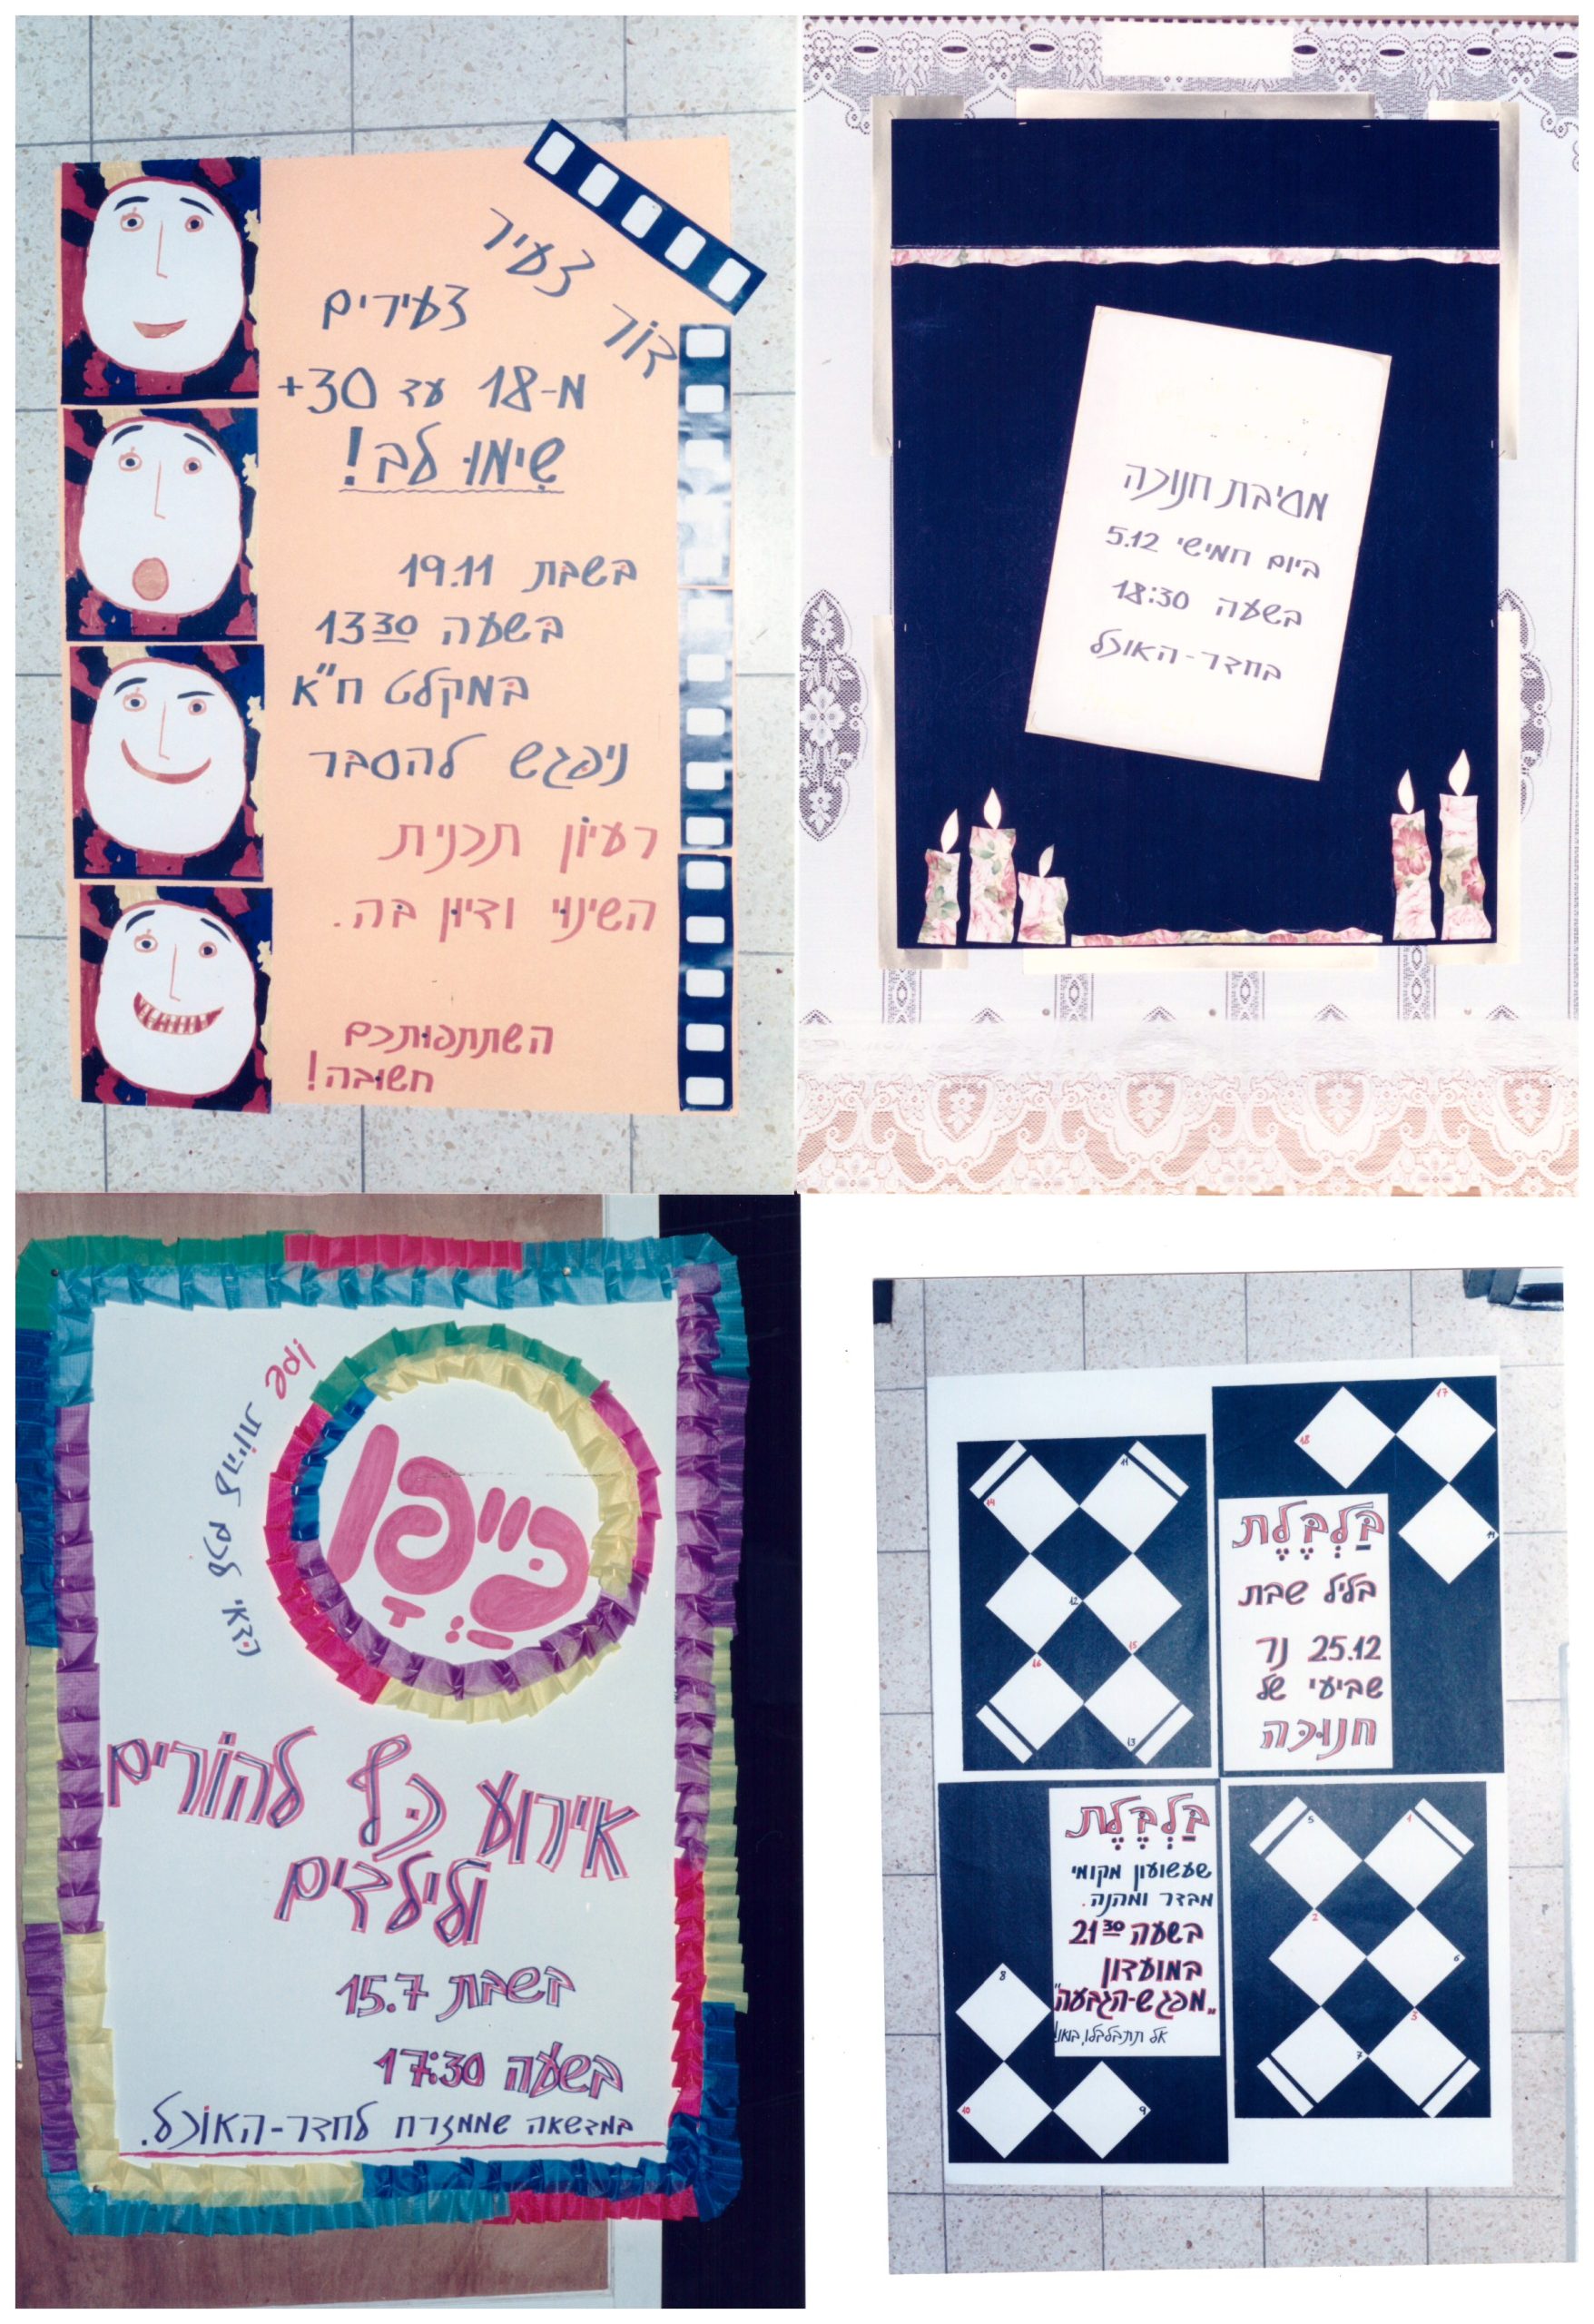 דוֹר צעיר
צעירים
מ-18 עד 30+
שִימוּ לב!
בשבת 19.11
בשעה 13 30
במקלט ח"א
ניפגש להסבר
רעיון תכנית
השינוי ודיון בה.
השתתפותכם
חשובה!
מסיבת חנוכה
ביום חמישי 5.12
בשעה 18:30
בחדר-האוכל
כדאי לכם להיות שם
כַּייפָן
אירוע כּיף להורים
ולילדים
בשבת 15.7
בשעה 17:30
במדשאה שממזרח לחדר-האוֹכל.
17
18
19
11
14
12
15
16
13
בַּלְבֶּלֶת
בליל שבת
25.12 נר
שביעי של
חנוּכּה
בַּלְבֶּלֶת
שעשועון מקומי
מבדר ומהנה.
בשעה 21 30
במועדון
"מפגש-הגבעה"
אל תתבלבלו, בואו!
8
10
9
5
1
2
6
3
7